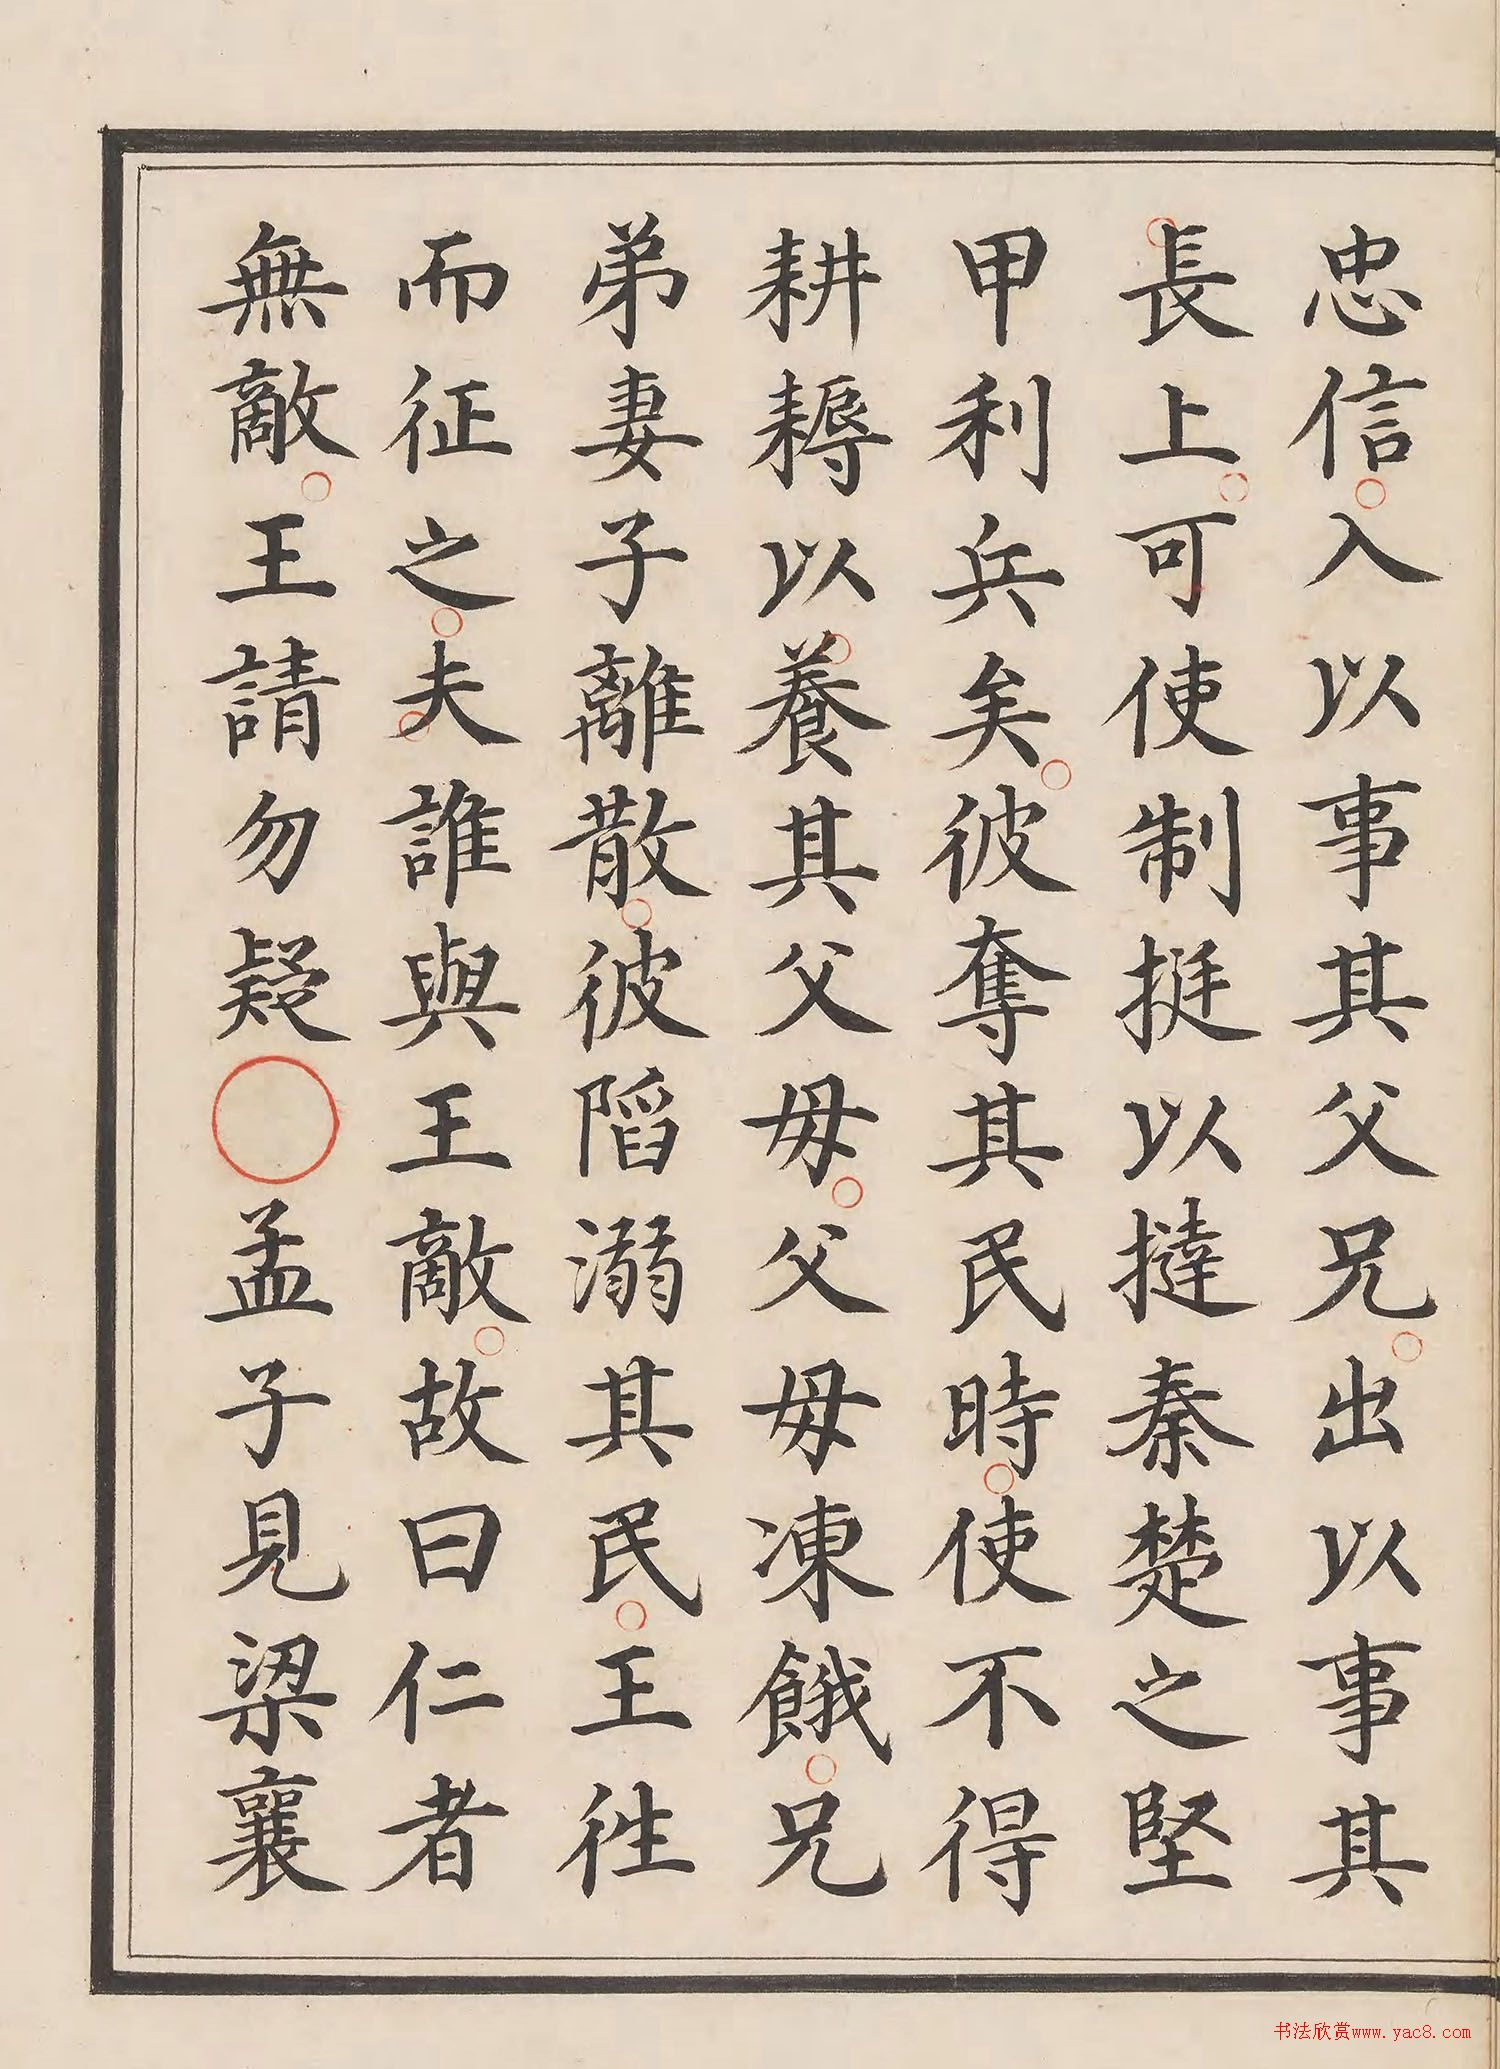 忠信○入以事其父兄○出以事其
長上○可使制挺以撻秦楚之堅
甲利兵矣○彼奪其民時○使不得
耕耨以養其父母○父母凍餓○兄
弟妻子離散○彼陷溺其民○王往
而征之○夫誰與王敵○故曰仁者
無敵○王請勿疑○孟子見梁襄
书法欣赏www.yac8.com